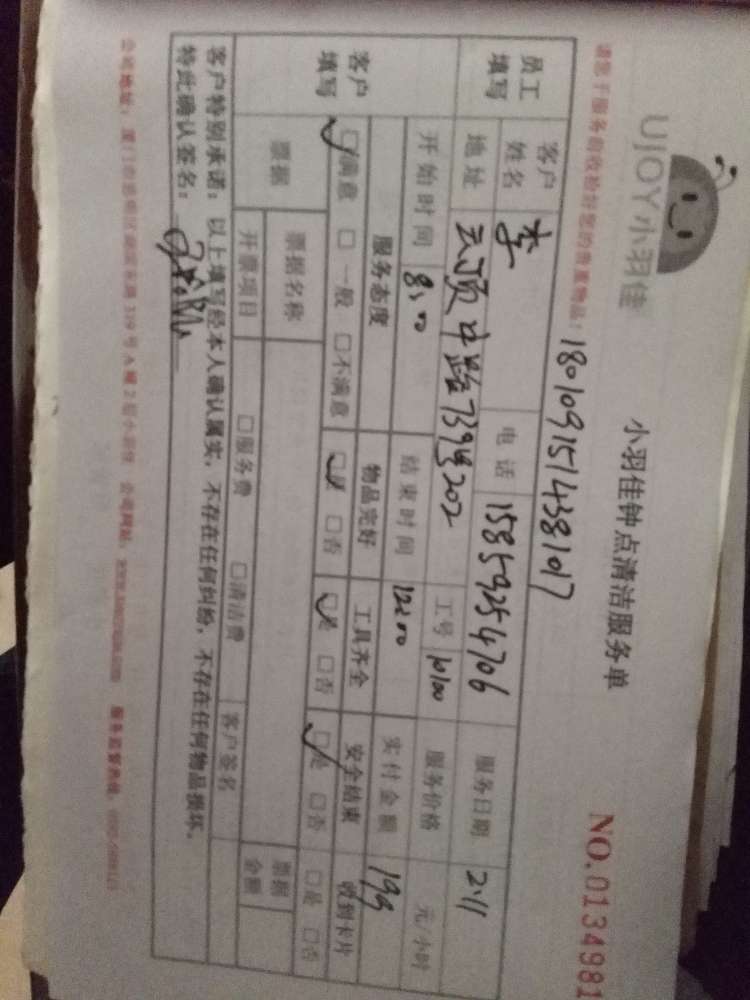 UJOY小羽佳
小羽佳钟点清洁服务单
NO.0134981
请您于服务前收拾好您的贵重物品!
1801091514381017
员工填写 客户姓名 李 电话 15859254706 服务日期 2.11
地址 云顶中路739号202 工号 10100 服务价格 元/小时
开始时间 8:00 结束时间 12:00 实付金额 199
客户填写 服务态度 物品完好 工具齐全 安全结束 收到卡片
☑满意 □一般 □不满意 ☑是 □否 ☑是 □否 ☑是 □否 □是 □否
票据 票据名称 票据金额
开票项目 □服务费 □清洁费 客户签名
客户特别承诺：以上填写经本人确认属实，不存在任何纠纷，不存在任何物品损坏。
特此确认签名：
公司地址：厦门市思明区 339号A幢2层小羽佳 公司网站： 服务监督热线：